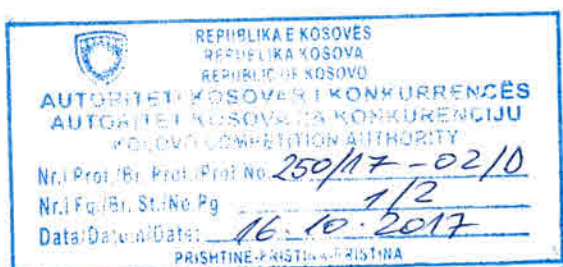 REPUBLIKA E KOSOVËS
REPUBLIKA KOSOVA
REPUBLIC OF KOSOVO
AUTORITETI KOSOVAR I KONKURRENCËS
AUTORITET KOSOVA ZA KONKURENCIJU
KOSOVO COMPETITION AUTHORITY
Nr.i Prot./Br. Prot./Prot No. 250/17-02/D
Nr.i Fq./Br. St./No Pg 1/2
Data/Datum/Date: 16.10.2017
PRISHTINË-PRIŠTINA-PRISTINA